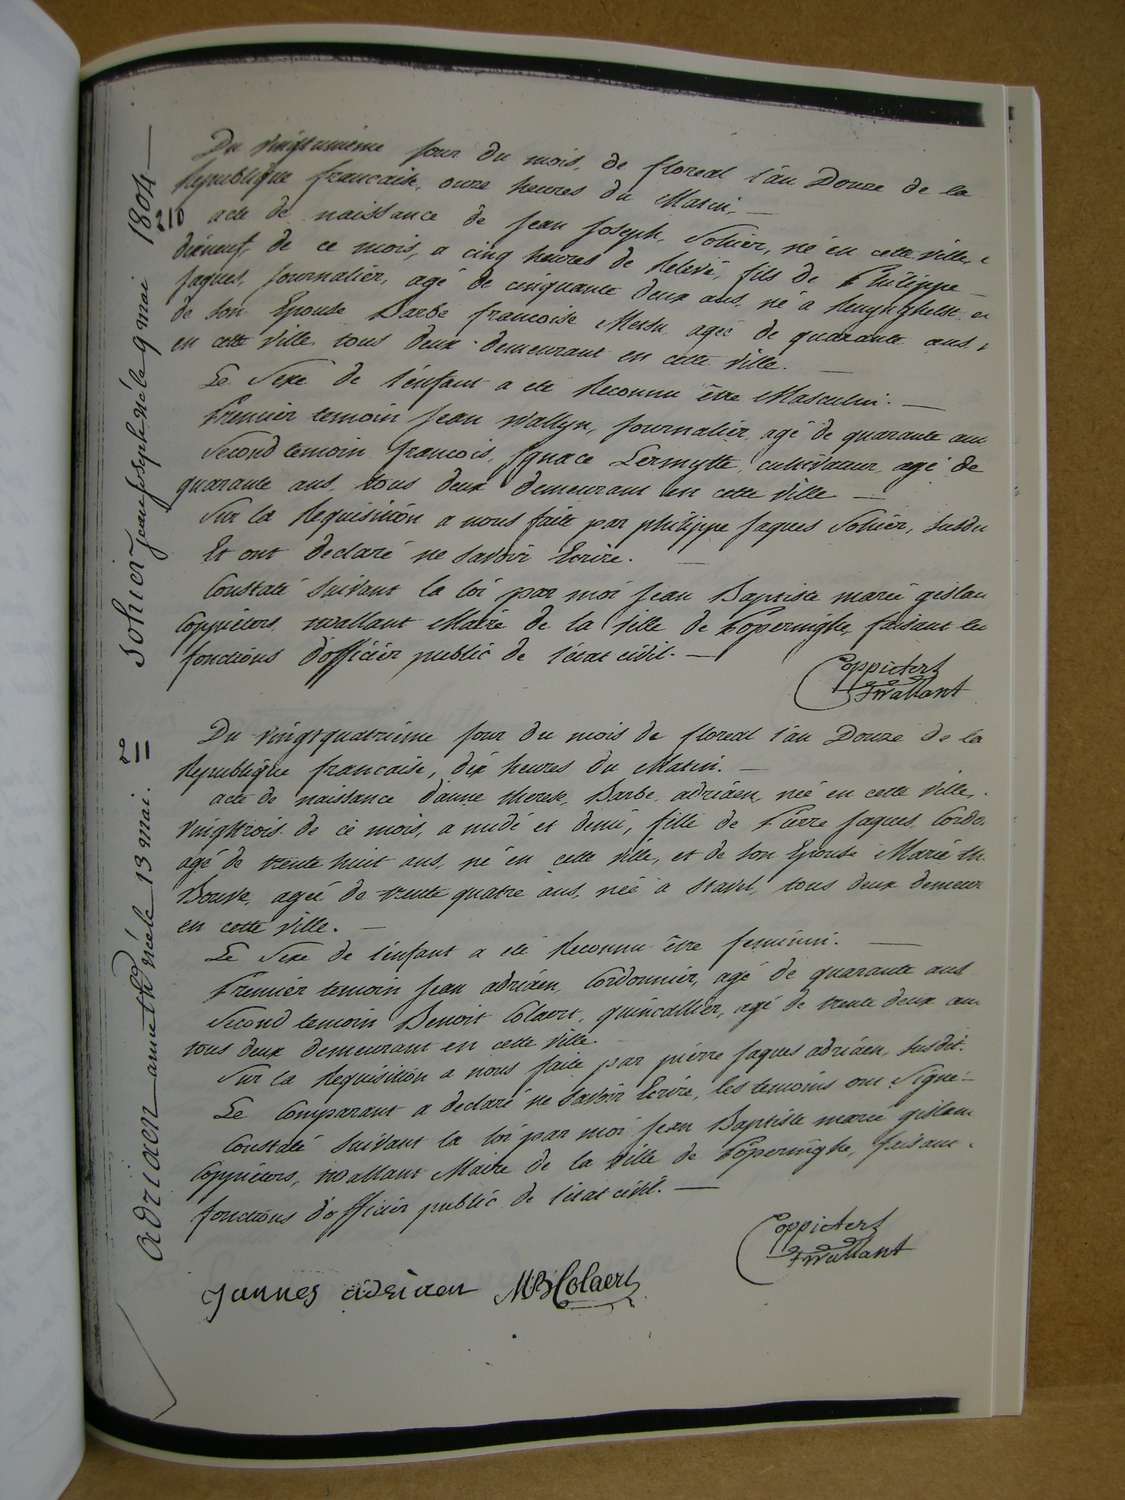 Sohier jean joseph né le 9 mai 1804
210
Du vingtunième jour du mois de floreal l'an Douze de la
Republique francaise, onze heures du Matin.
acte de naissance de jean joseph Sohier, né en cette ville,
dixneuf de ce mois, a cinq heures de Relevé, fils de Philippe
jaques, journalier, agé de cinquante deux ans, né a Renynghelst et
de son Epouse Barbe francoise agée de quarante ans
en cette ville tous deux demeurant en cette ville.
Le Sexe de l'enfant a eté Reconnu être Masculin.
Premier temoin jean Wallyn, journalier agé de quarante ans
Second temoin francois Ignace Lermytte, cultivateur agé de
quarante ans, tous deux demeurant en cette ville
Sur la Requisition a nous faite par philippe jaques Sohier, Susdit
Et ont declaré ne savoir Ecrire.
Constaté suivant la loi par moi jean Baptiste marie gislain
Coppieters Wallant Maire de la ville de Poperinghe, faisant les
fonctions d'officier public de l'etat civil.
Coppieters
Twallant
211
Adriaen anne th née le 13 mai.
Du vingtquatrième jour du mois de floreal l'an Douze de la
Republique francaise, dix heures du Matin.
acte de naissance d'anne therese Barbe adriaen, née en cette ville,
vingttrois de ce mois, a midi et demi, fille de Pierre jaques Cordo
agé de trente huit ans, né en cette ville, et de son Epouse Marie th
agée de trente quatre ans, née a Stavel, tous deux demeur
en cette ville.
Le Sexe de l'enfant a eté Reconnu être feminin.
Premier temoin jean adriaen, Cordonnier, agé de quarante ans
Second temoin Benoit Colaert, quincallier, agé de trente deux an
tous deux demeurant en cette ville.
Sur la Requisition a nous faite par pierre jaques adriaen, susdit.
Le Comparant a declaré ne savoir Ecrire, les temoins ont Signé
Constaté suivant la loi par moi jean Baptiste marie gislain
Coppieters, Wallant Maire de la ville de Poperinghe, faisant
fonctions d'officier public de l'etat civil.
Coppieters
Twallant
Jannes adriaen MB Colaert